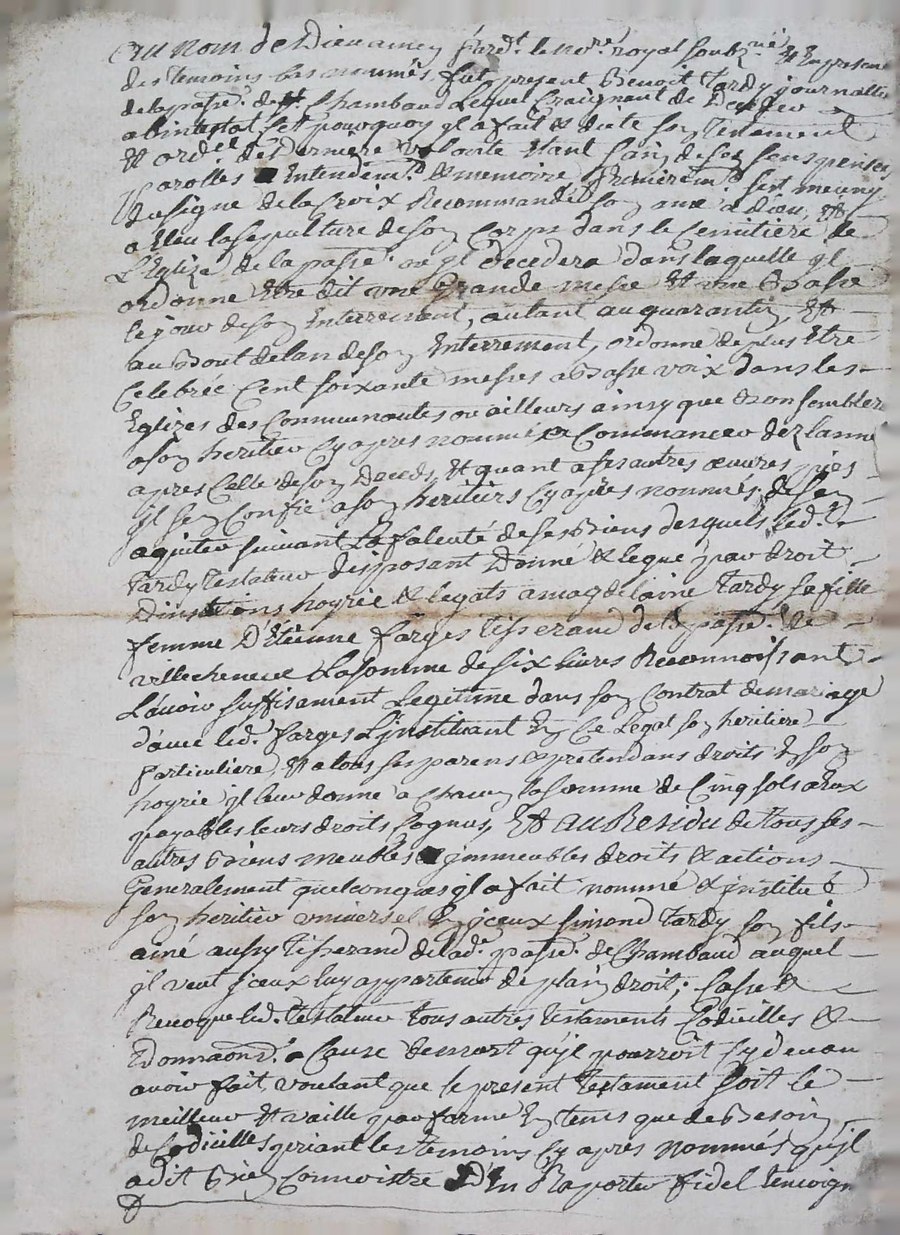 Au nom de Dieu amen pard.t le no.re royal soubz.né Et En presence
des temoins bas nommés fut present Benoit Tardy journallier
de la passe. de S.t Chambaud Lequel Craignant de Deceder
abintestat, c'est pourquoy jl a fait & dicté son testament
Et ord.ce de Derniere volonté Etant sain de ses sens pensés
parolles Entendem.t & memoire Premierem.t s'est meuny
du signe de la Croix Recommandé son ame a dieu, Et
a Eleu la sepulture de son Corps dans le Cemitiere de
L'Eglize de la passe. ou jl decedera dans laquelle jl
ordonne Etre dit une Grande messe Et une Basse
le jour de son Enterrement, autant au quarantin, Et
au Bout de lan de son Enterrement, ordonne de plus Etre
Celebrée Cent soixante messes a Basse voix dans les
Eglizes des Communautes ou ailleurs ainsy que Bon semblera
a son heritier Cy apres nommé a Commancer dez lanné
apres Celle de son Deceds, Et quant a ses autres œuvres pies
jl s'en Confie a son heritiers Cy après nommés de s'en
aquiter suivant La faculté de ses Biens desquels led.t
Tardy testateur disposant Donne & legue par droit
D'institutions hoyrie & legats a magdelaine Tardy sa fille
femme D'Etienne farges tisserand de la passe. de
villecheneve La somme de six livres Reconnoissant
L'avoir suffisament Legitime dans son Contrat de mariage
d'avec led.t farges L'jnstituant En Ce Legat son heritiere
particuliere, Et a tous ses parens & pretendans droits En son
hoyrie jl leur donne a Chacun la somme de Cinq sols a Eux
payables leurs droits Cognus, Et au Residu de tous ses
autres Biens meubles jmmeubles droits & actions
Generalement quelconques jl a fait nommé & jnstitué
son heritier universel En jceux simond Tardy son fils
ainé aussy tisserand de lad.e passe. de Chambaud auquel
jl veut jceux luy appartenir de plain droit; Casse &
Revoque led.t testateur tous autres testaments Codicilles &
Donnaons a Cause de mort qu'jl pourroit Cy devan
avoir fait, voulant que le present testament soit le
meilleur Et vaille par forme En tems que de Besoin
de Codicilles priant les temoins Cy apres nommés qu'jl
a dit Bien Connoitre D'En Raporter fidel temoign